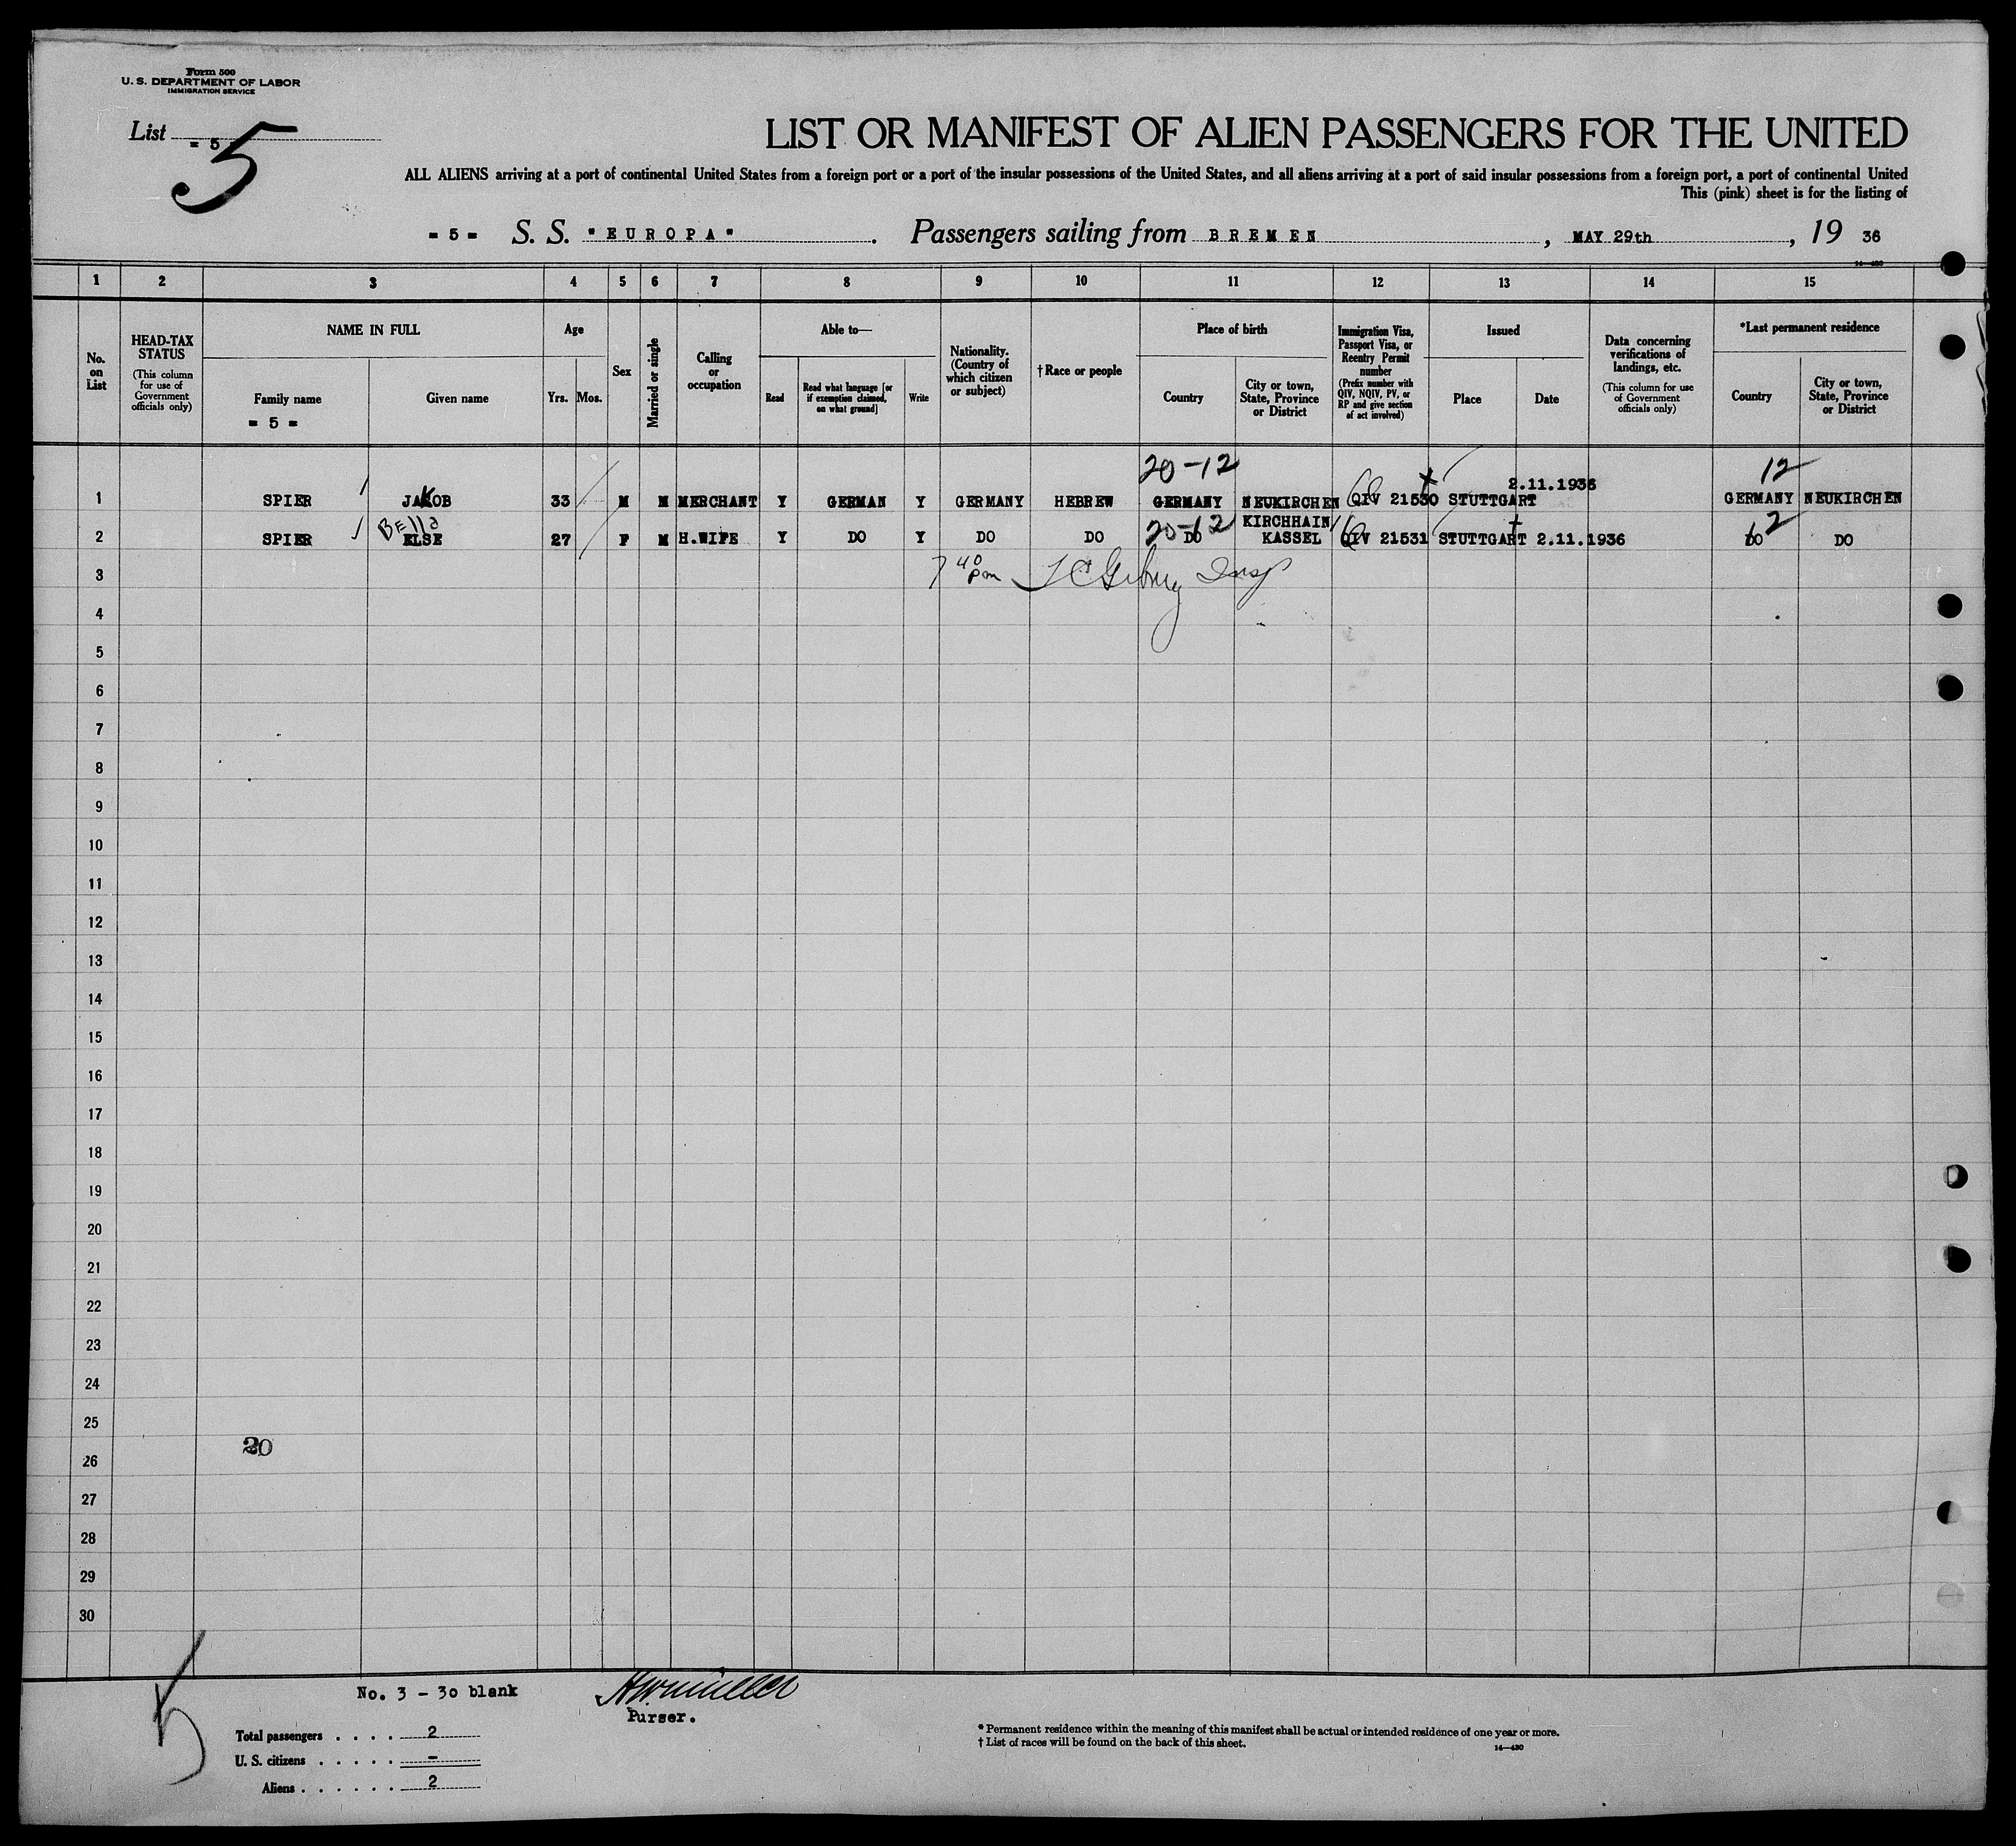 Form 500
U. S. DEPARTMENT OF LABOR
IMMIGRATION SERVICE
List = 5
5
LIST OR MANIFEST OF ALIEN PASSENGERS FOR THE UNITED
ALL ALIENS arriving at a port of continental United States from a foreign port or a port of the insular possessions of the United States, and all aliens arriving at a port of said insular possessions from a foreign port, a port of continental United
This (pink) sheet is for the listing of
= 5 = S. S. "EUROPA". Passengers sailing from BREMEN, MAY 29th, 19 36
14-430
1 2 3 4 5 6 7 8 9 10 11 12 13 14 15
No. on List
HEAD-TAX STATUS
(This column for use of Government officials only)
NAME IN FULL
Family name
= 5 =
Given name
Age
Yrs. Mos.
Sex
Married or single
Calling or occupation
Able to—
Read
Read what language [or if exemption claimed, on what ground]
Write
Nationality. (Country of which citizen or subject)
†Race or people
Place of birth
Country
City or town, State, Province or District
Immigration Visa, Passport Visa, or Reentry Permit number
(Prefix number with QIV, NQIV, PV, or RP and give section of act involved)
Issued
Place
Date
Data concerning verifications of landings, etc.
(This column for use of Government officials only)
*Last permanent residence
Country
City or town, State, Province or District
20-12
12
2.11.1936
1 SPIER JAKOB 33 M M MERCHANT Y GERMAN Y GERMANY HEBREW GERMANY NEUKIRCHEN QIV 21530 STUTTGART GERMANY NEUKIRCHEN
Bella
20-12
KIRCHHAIN
12
2 SPIER ELSE 27 F M H.WIFE Y DO Y DO DO DO KASSEL QIV 21531 STUTTGART 2.11.1936 DO DO
3
7 40 pm
Insp
4
5
6
7
8
9
10
11
12
13
14
15
16
17
18
19
20
21
22
23
24
25
20
26
27
28
29
30
5
No. 3 - 30 blank
Purser.
Total passengers . . . . 2
U. S. citizens . . . . . -
Aliens . . . . . . 2
* Permanent residence within the meaning of this manifest shall be actual or intended residence of one year or more.
† List of races will be found on the back of this sheet.
14-430